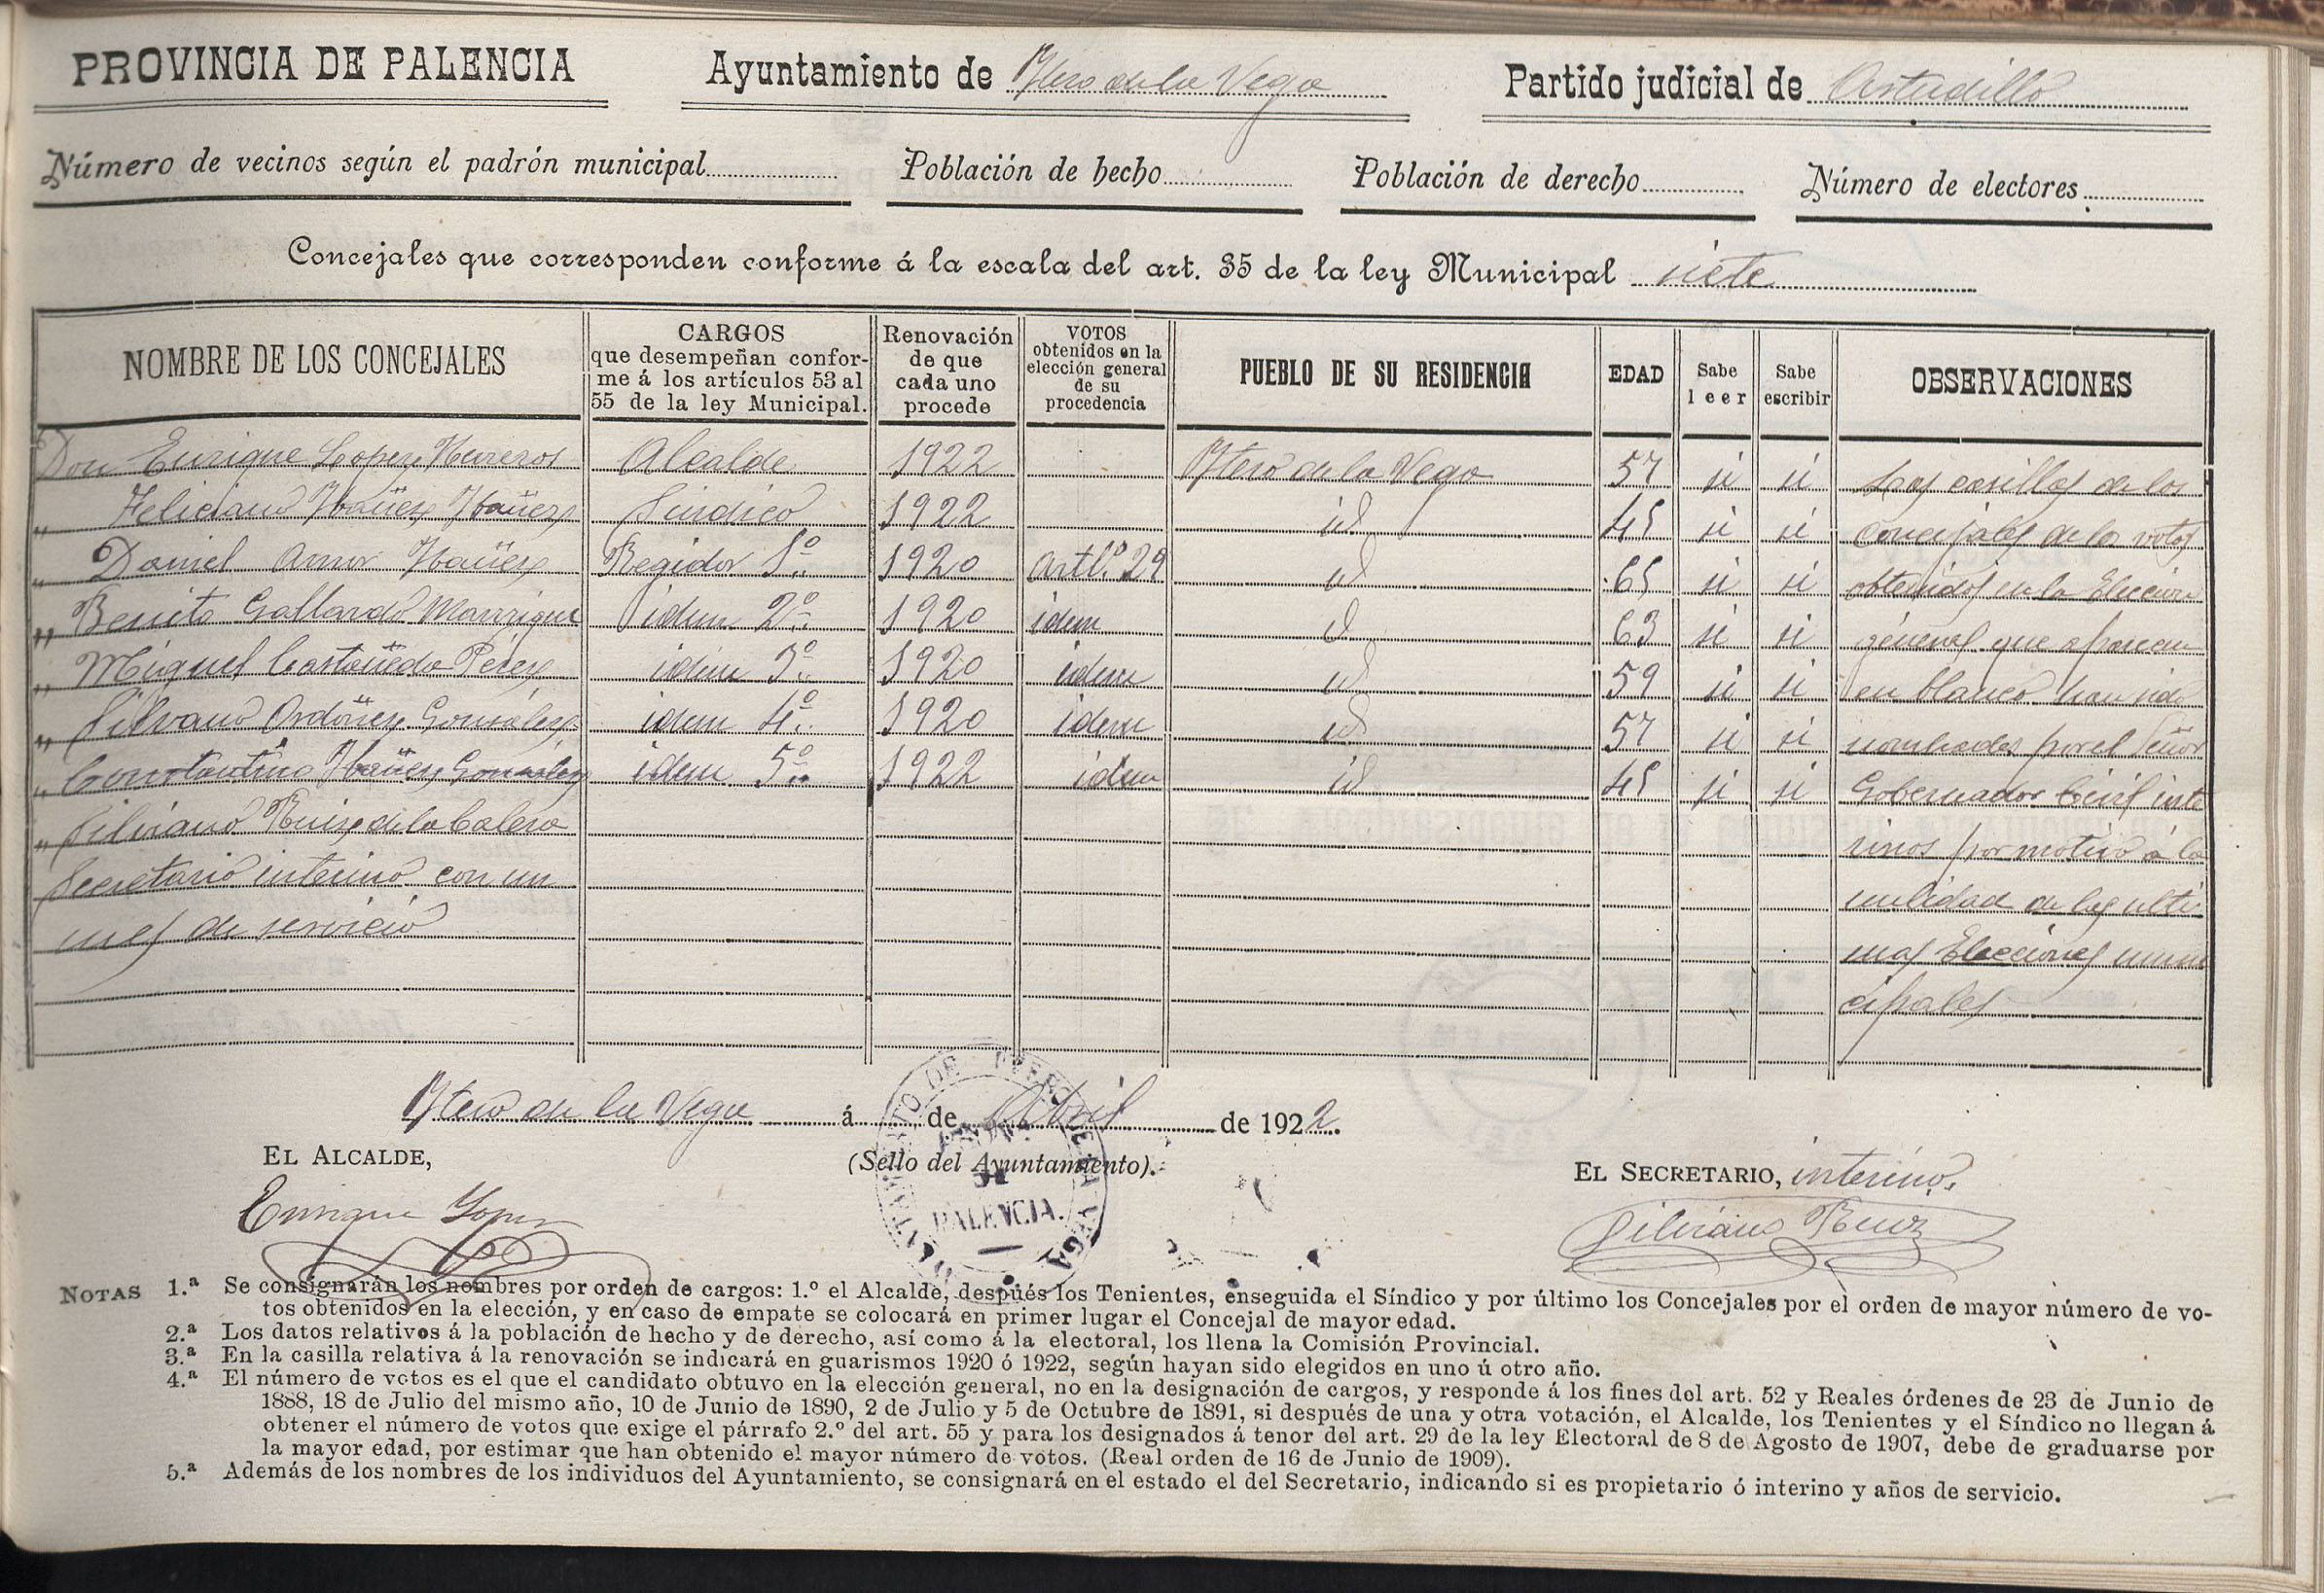 PROVINCIA DE PALENCIA
Ayuntamiento de Ytero de la Vega
Partido judicial de Astudillo
Número de vecinos según el padrón municipal
Población de hecho
Población de derecho
Número de electores
Concejales que corresponden conforme á la escala del art. 35 de la ley Municipal siete
NOMBRE DE LOS CONCEJALES
CARGOS
que desempeñan confor-
me á los artículos 53 al
55 de la ley Municipal.
Renovación
de que
cada uno
procede
VOTOS
obtenidos en la
elección general
de su
procedencia
PUEBLO DE SU RESIDENCIA
EDAD
Sabe
leer
Sabe
escribir
OBSERVACIONES
Don Enrique Lopez Herreros Alcalde 1922 Ytero de la Vega 57 si si Las casillas de los
„ Feliciano Ybañez Ybañez Sindico 1922 id 45 si si Concejales de los votos
„ Daniel Amor Ybañez Regidor 1º 1920 Artl.º 29 id 65 si si obtenidos en la Eleccion
„ Benito Gallardo Manrique idem 2º 1920 idem id 63 si si general que aparecen
„ Miguel Castañeda Perez idem 3º 1920 idem id 59 si si en blanco han sido
„ Silvano Ordoñez Gonzalez idem 4º 1920 idem id 57 si si nombrados por el Señor
„ Constantino Ybañez Gonzalez idem 5º 1922 idem id 45 si si Gobernador Civil inte
„ Silviano Ruiz de la Calera rinos por motivo a la
Secretario interino con un nulidad de las ulti
mes de servicio mas Elecciones muni
cipales
Ytero de la Vega á de Abril de 1922.
EL ALCALDE,
(Sello del Ayuntamiento).
EL SECRETARIO, interino.
Enrique Lopez
AYUNTAMIENTO DE ITERO DE LA VEGA
PALENCIA.
Silviano Ruiz
NOTAS 1.ª Se consignarán los nombres por orden de cargos: 1.º el Alcalde, después los Tenientes, enseguida el Síndico y por último los Concejales por el orden de mayor número de vo-
tos obtenidos en la elección, y en caso de empate se colocará en primer lugar el Concejal de mayor edad.
2.ª Los datos relativos á la población de hecho y de derecho, así como á la electoral, los llena la Comisión Provincial.
3.ª En la casilla relativa á la renovación se indicará en guarismos 1920 ó 1922, según hayan sido elegidos en uno ú otro año.
4.ª El número de votos es el que el candidato obtuvo en la elección general, no en la designación de cargos, y responde á los fines del art. 52 y Reales órdenes de 23 de Junio de
1888, 18 de Julio del mismo año, 10 de Junio de 1890, 2 de Julio y 5 de Octubre de 1891, si después de una y otra votación, el Alcalde, los Tenientes y el Síndico no llegan á
obtener el número de votos que exige el párrafo 2.º del art. 55 y para los designados á tenor del art. 29 de la ley Electoral de 8 de Agosto de 1907, debe de graduarse por
la mayor edad, por estimar que han obtenido el mayor número de votos. (Real orden de 16 de Junio de 1909).
5.ª Además de los nombres de los individuos del Ayuntamiento, se consignará en el estado el del Secretario, indicando si es propietario ó interino y años de servicio.